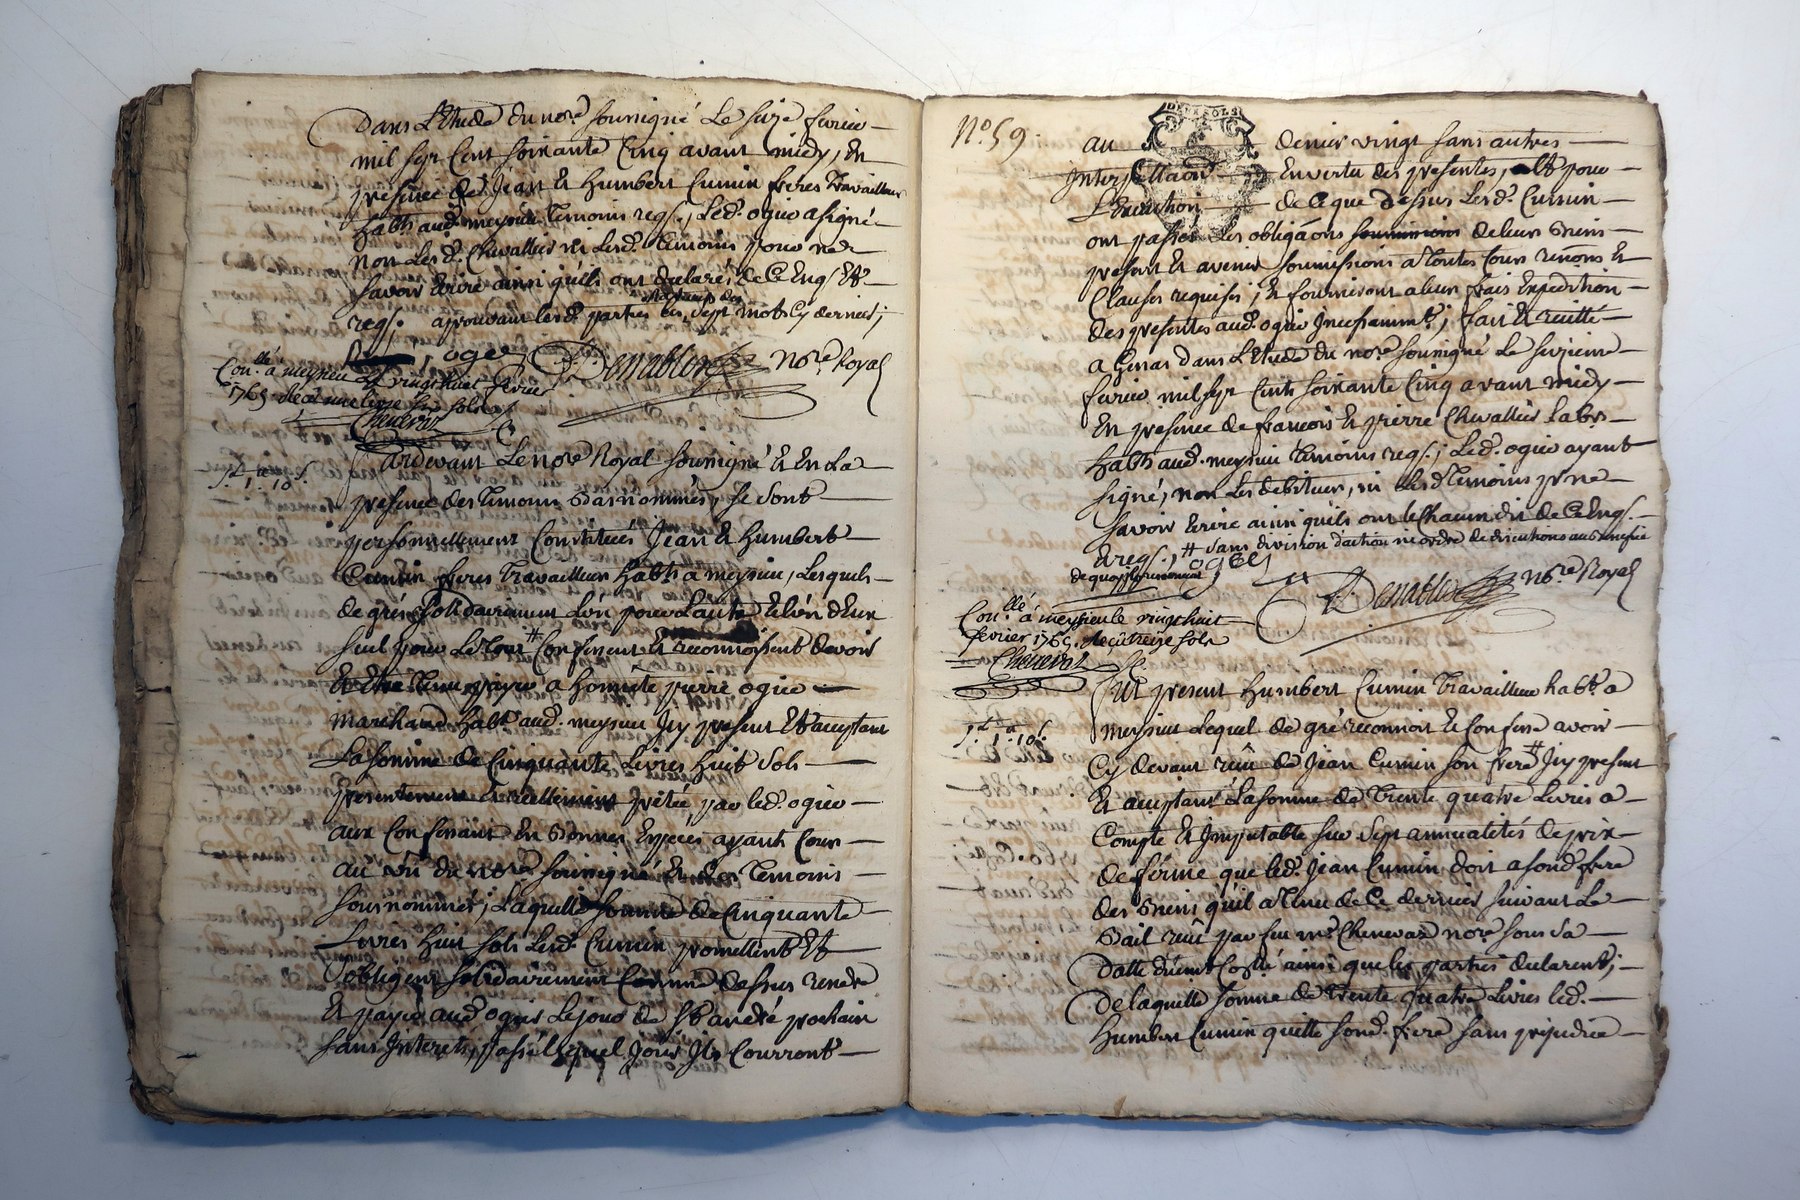 Dans L'Etude du nore soussigné Le seize fevrier
mil sept Cent soixante Cinq avant midy, En
presence de Jean & humbert Cumin freres Travailleurs
habts aud. meysieu Temoins reqs., Led. ogier a signé
non Les d. Chevallier ni Lesd. temoins pour ne
savoir Ecrire ainsi quils ont declaré de Ce Enqs Et
reqs. aprouvant lesd. parties les sept mots Cy derniers;
ogier Demablon Nore Royal
Conllé a meysieu Le vingt huit fevrier
1765 Reçu une livre six sols
Chenevaz
Pardevant Le Nore Royal soussigné & En La
presence des Temoins Bas nommés, se sont
personnellement Constitués Jean & humbert
Cumin freres Travailleurs habts a meysieu, Lesquels
de gré solidairement L'un pour L'autre & L'un d'Eux
seul pour Le Tout # Confessent & reconnoissent devoir
& Etre Tenu payer a honnete pierre ogier
marchand habt aud. meysieu Jcy present Et acceptant
La somme de Cinquante Livres huit sols
presentement & reellement pretée par led. ogier
aux Confessant En Bonnes Especes ayant Cours
au vû du nore soussigné & des Temoins
sousnommés; Laquelle somme de Cinquante
Livres huit sols Lesd. Cumin promettent Et
obligent solidairement Comme dessus rendre
& payer aud. ogier Le jour de St andré prochain
sans Interets, passé Lequel Jour Jls Courront
No 59.
au denier vingt sans autres
Interpellaon En vertu des presentes, Et pour
L'Execution de Ce que dessus Lesd. Cumin
ont passés Les obligaons soumissions de leurs Biens
present & avenir soumissions a toutes Cours renons &
Clauses requises; & fourniront a leur frais Expedition
des presentes aud. ogier Jncessamment; fait & recitté
a Genas dans L'Etude du nore soussigné Le seizieme
fevrier mil sept Cents soixante Cinq avant midy
En presence de francois & pierre Chevallier labrs
habts aud. meysieu temoins reqs.; Led. ogier ayant
signé, non Les debiteurs, ni Les d. Temoins pr ne
savoir Ecrire ainsi quils ont Chacun dit de Ce Enqs.
& reqs., # sans division d'action ni ordre de discutions au Benefice
de quoy ils renoncent ogier
Demablon Nore Royal
Conllé a meysieu le vingt huit
fevrier 1765. Reçu treize sols
Chenevaz
Fut present humbert Cumin Travailleur habt a
meysieu Lequel de gré reconnoit & Confesse avoir
Cy devant reçû de Jean Cumin son frere # Jcy present
& acceptant La somme de Trente quatre Livres a
Compte & Jmputable sur sept annualités de prix
de ferme que led. Jean Cumin doit a sond. frere
des Biens qu'il a Tenu de Ce dernier suivant Le
Bail reçû par feu me Chenevaz nore sous sa
datte düement Conllé ainsi que les parties declarent;
de laquelle somme de Trente quatre Livres led.
humbert Cumin quitte sond. frere sans prejudice